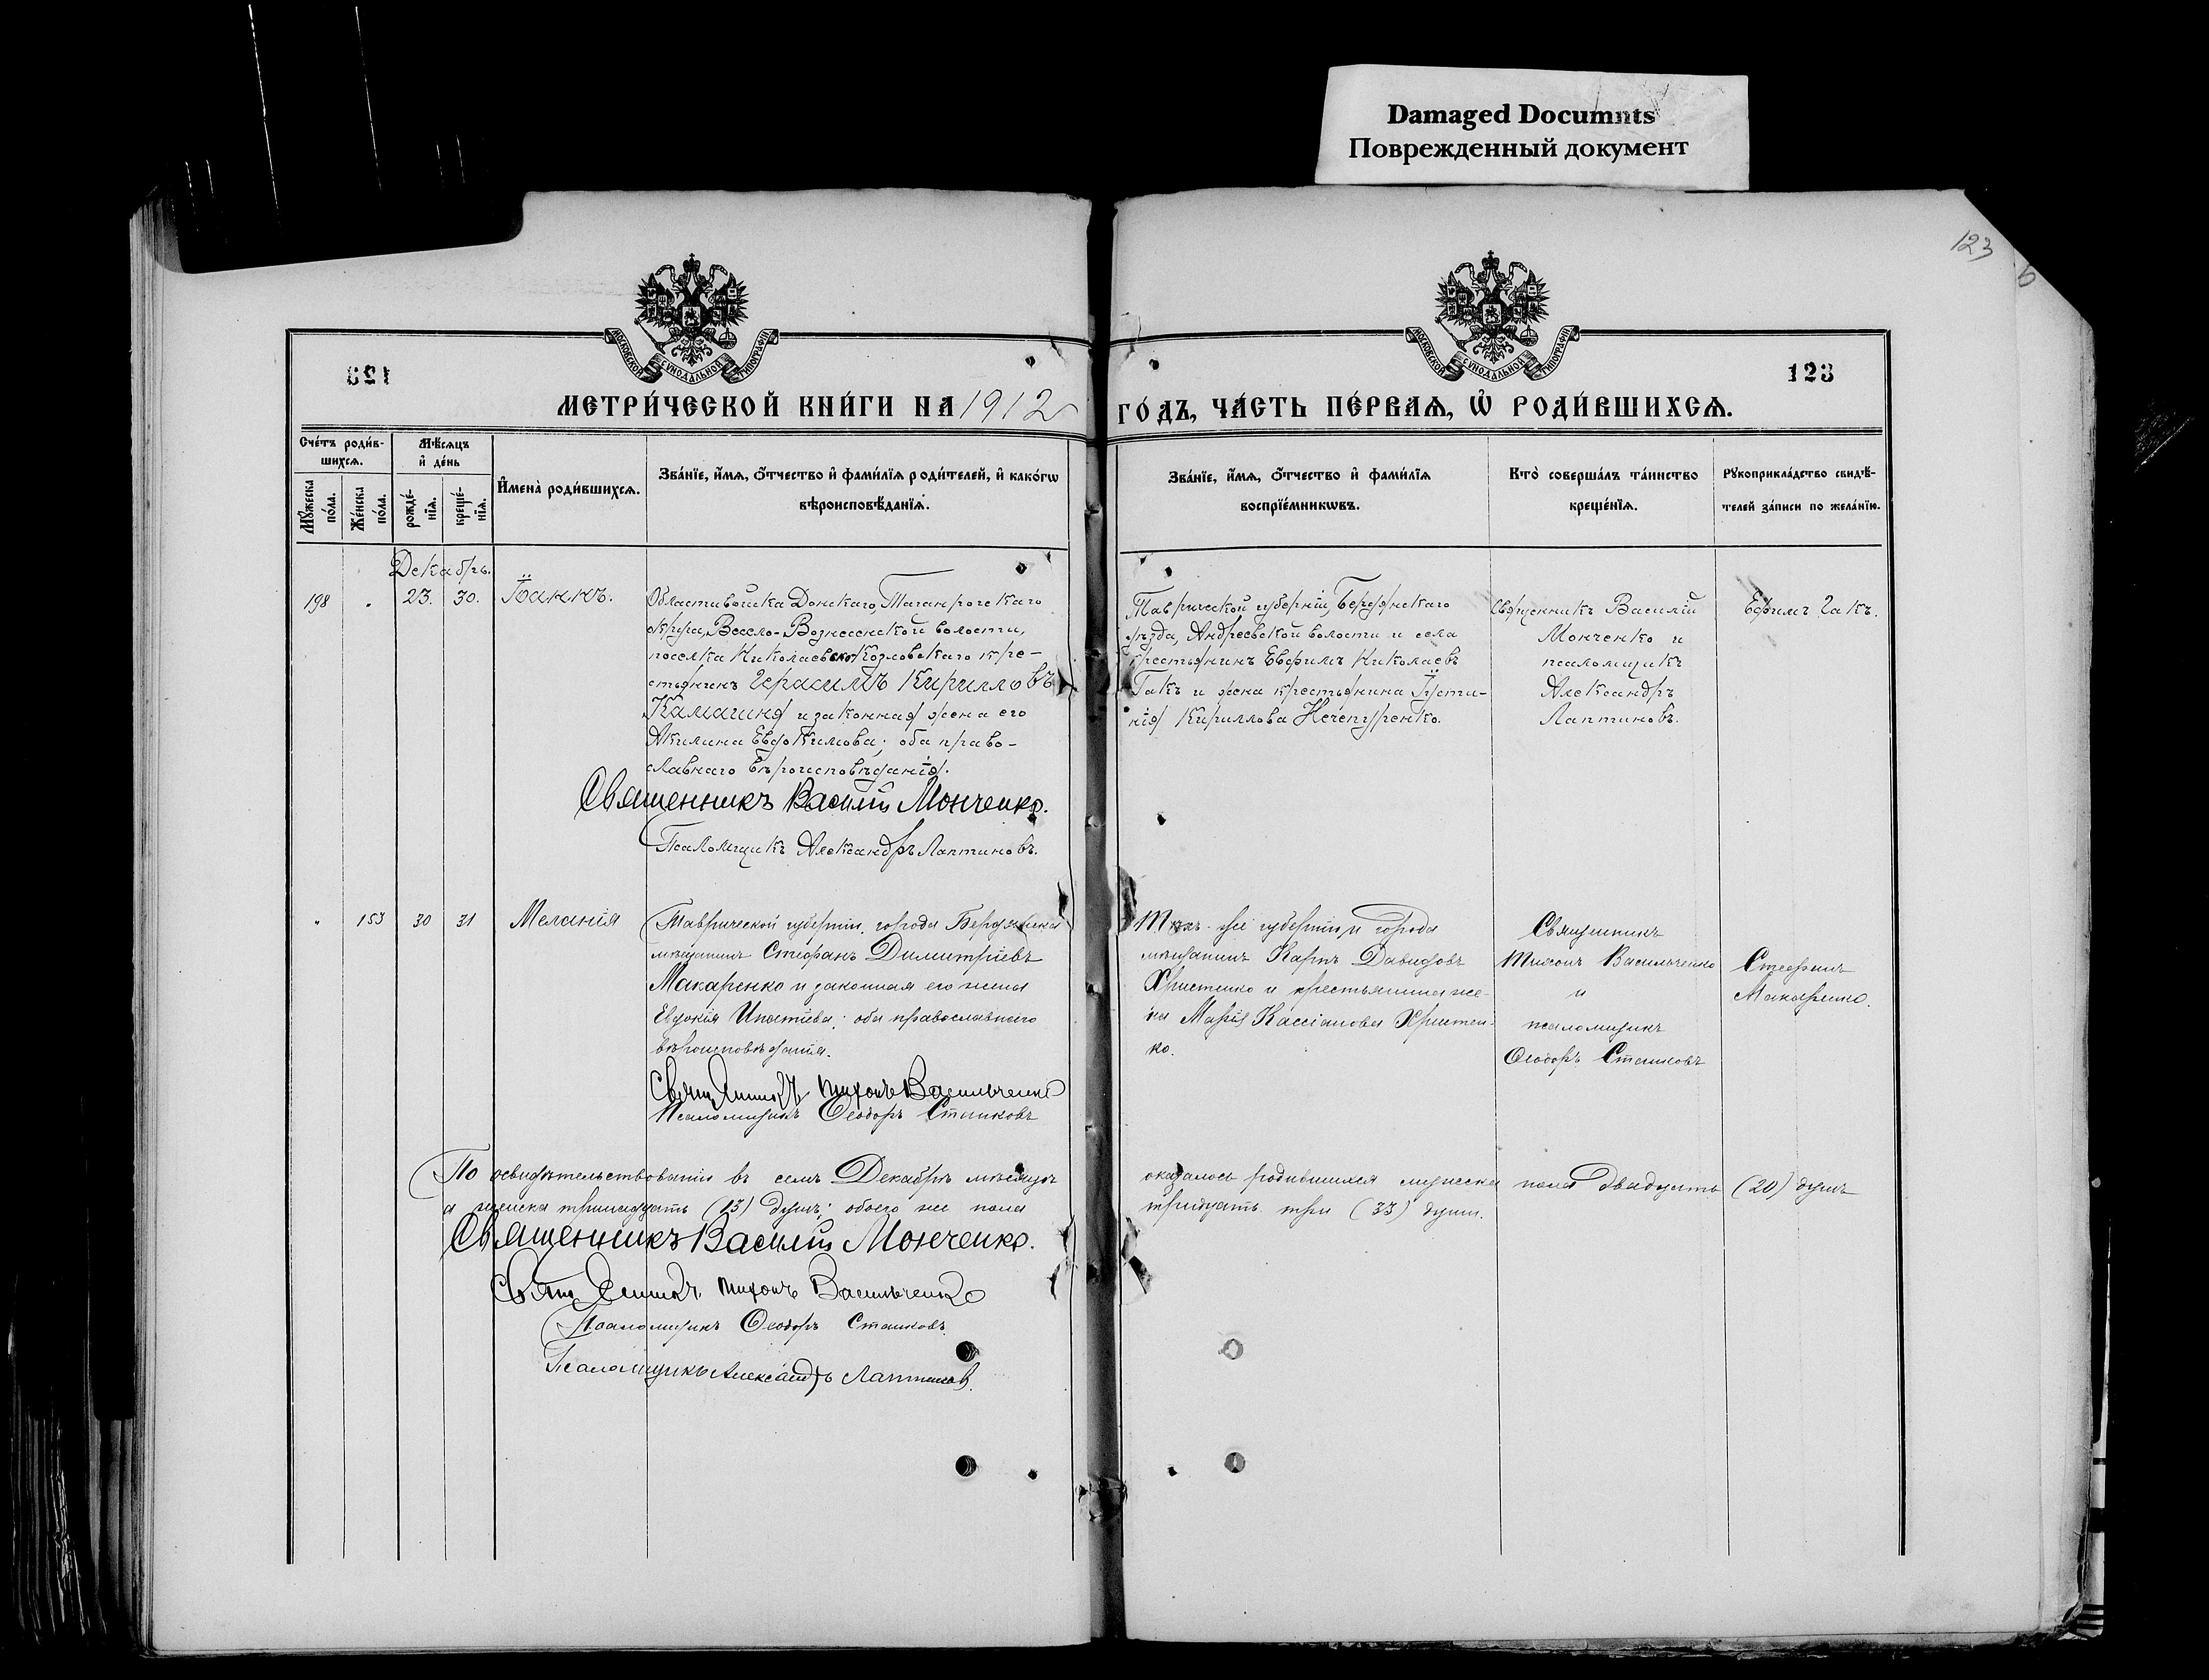 Damaged Documnts
Поврежденный документ
123
МОСКОВСКОЙ СѴНОДАЛЬНОЙ ТИПОГРАФІИ
МОСКОВСКОЙ СѴНОДАЛЬНОЙ ТИПОГРАФІИ
123
123
МЕТРИ́ЧЕСКОЙ КНИ́ГИ НА 1912 ГО́ДЪ, ЧА́СТЬ ПЕ́РВАѦ, Ѡ҆ РОДИ́ВШИХСѦ.
Сче́тъ роди́в-
шихсѧ.
Мѣ́сѧцъ
и҆ де́нь
Мꙋ́жеска
по́ла.
Же́нска
по́ла.
рожде́-
нїѧ.
креще́-
нїѧ.
И҆мена̀ роди́вшихсѧ.
Зва́нїе, и҆́мѧ, ѻ҆́тчество и҆ фами́лїѧ роди́телей, и҆ како́гѡ
вѣроисповѣ́данїѧ.
Зва́нїе, и҆́мѧ, ѻ҆́тчество и҆ фами́лїѧ
воспрїе́мникѡвъ.
Кто̀ соверша́лъ та́инство
креще́нїѧ.
Рꙋкоприкла́дство свидѣ́-
телей за́писи по жела́нїю.
Декабрь.
198 " 23. 30. Іаннъ.
Области войска Донскаго, Таганрогскаго
округа, Весело-Вознесенской волости,
поселка Николаевско-Козловскаго кре-
стьянинъ Герасимъ Кирилловъ
Камагина и законная жена его
Акилина Евдокимова; оба право-
славнаго вѣроисповѣданія.
Священникъ Василій Монченко.
Псаломщикъ Александръ Лаптиновъ.
Таврической губерніи, Бердянскаго
уѣзда, Андреевской волости и села
крестьянинъ Евфимъ Николаевъ
Гакъ и жена крестьянина Іусти-
нія Кириллова Нечепуренко.
Священникъ Василій
Монченко и
псаломщикъ
Александръ
Лаптиновъ.
Ефимъ Гакъ.
" 153 30 31 Меланія
Таврической губерніи, города Бердянска
мѣщанинъ Стефанъ Димитріевъ
Макаренко и законная его жена
Евдокія Ипатіева; оба православнаго
вѣроисповѣданія.
Священникъ Тихонъ Васильченко
Псаломщикъ Ѳеодоръ Сташковъ
Той-же губерніи и города
мѣщанинъ Карпъ Давидовъ
Христенко и крестьянина же-
на Марія Кассіанова Христен-
ко.
Священникъ
Тихонъ Васильченко
и
псаломщикъ
Ѳеодоръ Сташковъ
Стефанъ
Макаренко.
По освидѣтельствованіи въ семъ Декабрѣ мѣсяцѣ оказалось родившихся мужеска пола двадцать (20) душъ
а женска тринадцать (13) душъ; обоего же пола тридцать три (33) души.
Священникъ Василій Монченко.
Священникъ Тихонъ Васильченко
Псаломщикъ Ѳеодоръ Сташковъ.
Псаломщикъ Александръ Лаптиновъ.